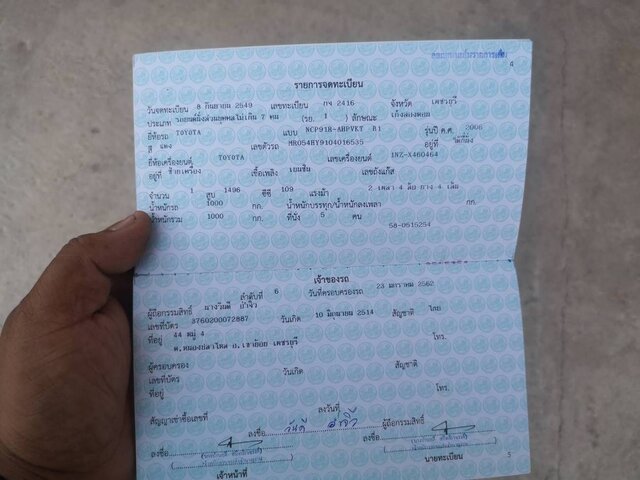 4
รายการจดทะเบียน
วันจดทะเบียน 8 กันยายน 2549 เลขทะเบียน กง 2416 จังหวัด เพชรบุรี
ประเภท รถยนต์นั่งส่วนบุคคลไม่เกิน 7 คน (รย. 1 ) ลักษณะ เก๋งสองตอน
ยี่ห้อรถ TOYOTA แบบ NCP91R-AHPVKT B1 รุ่นปี ค.ศ. 2006
สี แดง เลขตัวรถ MR054BY9104016535 อยู่ที่
ยี่ห้อเครื่องยนต์ TOYOTA เลขเครื่องยนต์ 1NZ-X460464
อยู่ที่ ซ้ายเครื่อง เชื้อเพลิง เบนซิน เลขถังแก๊ส
จำนวน 1 สูบ 1496 ซีซี 109 แรงม้า 2 เพลา 4 ล้อ ยาง 4 เส้น
น้ำหนักรถ 1000 กก. น้ำหนักบรรทุก/น้ำหนักลงเพลา กก.
น้ำหนักรวม 1000 กก. ที่นั่ง 5 คน
58-0515254
เจ้าของรถ
ลำดับที่ 6 วันที่ครอบครองรถ 23 มกราคม 2562
ผู้ถือกรรมสิทธิ์ นางวันดี
เลขที่บัตร 3760200072887 วันเกิด 10 มิถุนายน 2514 สัญชาติ ไทย
ที่อยู่ 44 หมู่ 4 โทร.
ต.หนองปลาไหล อ.เขาย้อย เพชรบุรี
ผู้ครอบครอง
เลขที่บัตร วันเกิด สัญชาติ
ที่อยู่ โทร.
สัญญาเช่าซื้อเลขที่ ลงวันที่
ลงชื่อ วันดี ผู้ถือกรรมสิทธิ์
ลงชื่อ ลงชื่อ
เจ้าหน้าที่ นายทะเบียน
5